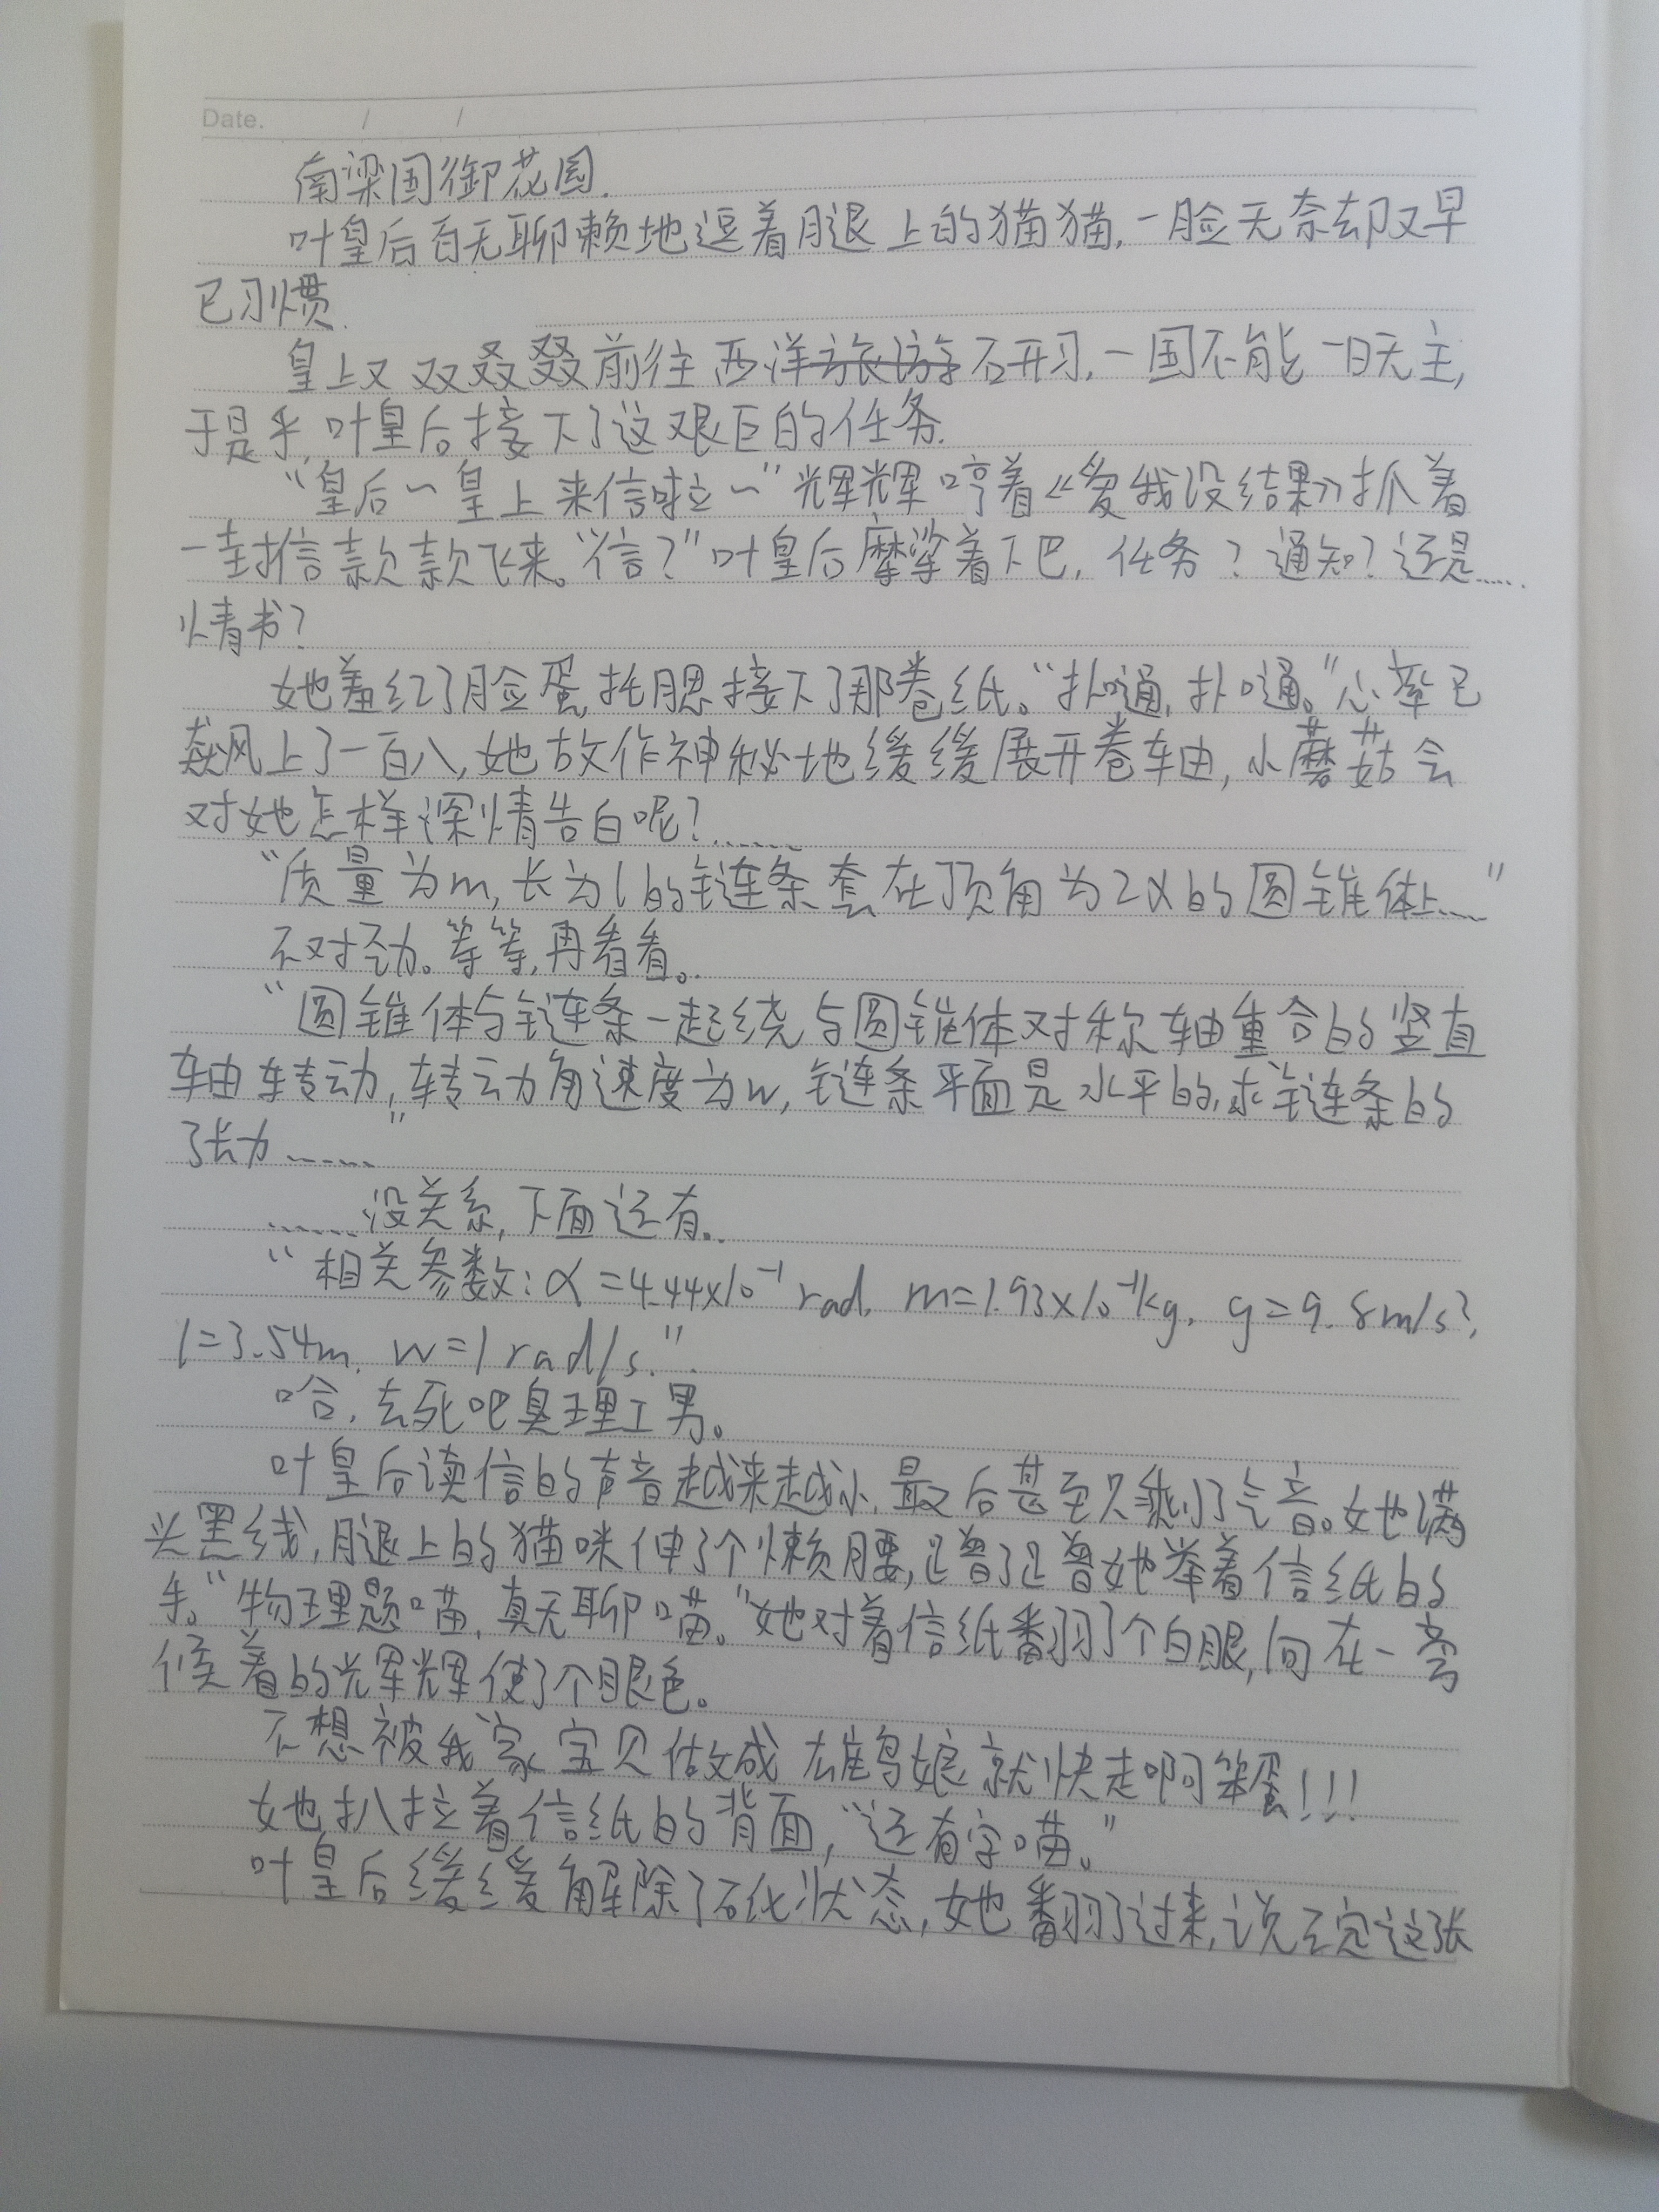 Date. / /
南梁国御花园.
叶皇后百无聊赖地逗着腿上的猫猫,一脸无奈却又早
已习惯.
皇上又双叒叕前往西洋旅游研习,一国不能一日无主,
于是乎,叶皇后接下了这艰巨的任务.
“皇后~皇上来信啦~”辉辉哼着《爱我没结果》抓着
一封信款款飞来。“信?”叶皇后摩挲着下巴,任务?通知?还是……
情书?
她羞红了脸蛋,托腮接下了那卷纸。“扑嗵,扑嗵。”心率已
飙风上了一百八,她故作神秘地缓缓展开卷轴,小蘑菇会
对她怎样深情告白呢?……
“质量为m,长为l的链条套在顶角为2α的圆锥体上……”
不对劲。等等,再看看。
“圆锥体与链条一起绕与圆锥体对称轴重合的竖直
轴转动,转动角速度为w,链条平面是水平的,求链条的
张力……”
……没关系,下面还有。
“相关参数:α=4.44×10⁻¹rad, m=1.93×10⁻¹kg, g=9.8m/s²,
l=3.54m, w=1rad/s.”
哈,去死吧臭理工男。
叶皇后读信的声音越来越小,最后甚至只剩了气音。她满
头黑线,腿上的猫咪伸了个懒腰,蹭了蹭她举着信纸的
手。“物理题喵,真无聊喵。”她对着信纸翻了个白眼,向在一旁
候着的辉辉使了个眼色。
不想被我家宝贝做成雄鸟娘就快走啊笨蛋!!!
她扒拉着信纸的背面,“还有字喵。”
叶皇后缓缓解除了石化状态,她翻了过来,说不定这张